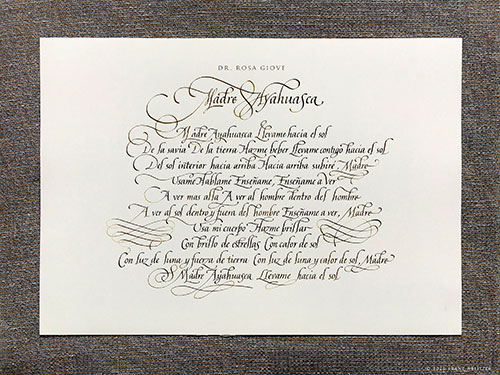 DR. ROSA GIOVE
Madre Ayahuasca
Madre Ayahuasca Llévame hacia el sol
De la savia De la tierra Hazme beber Llévame contigo hacia el sol
Del sol interior hacia arriba Hacia arriba subiré, Madre
Úsame Háblame Enséñame, Enséñame a Ver
A ver mas alla A ver al hombre dentro del hombre
A ver al sol dentro y fuera del hombre Enséñame a ver, Madre
Usa mi cuerpo Hazme brillar
Con brillo de estrellas Con calor de sol
Con luz de luna y fuerza de tierra Con luz de luna y calor de sol, Madre
Madre Ayahuasca Llévame hacia el sol